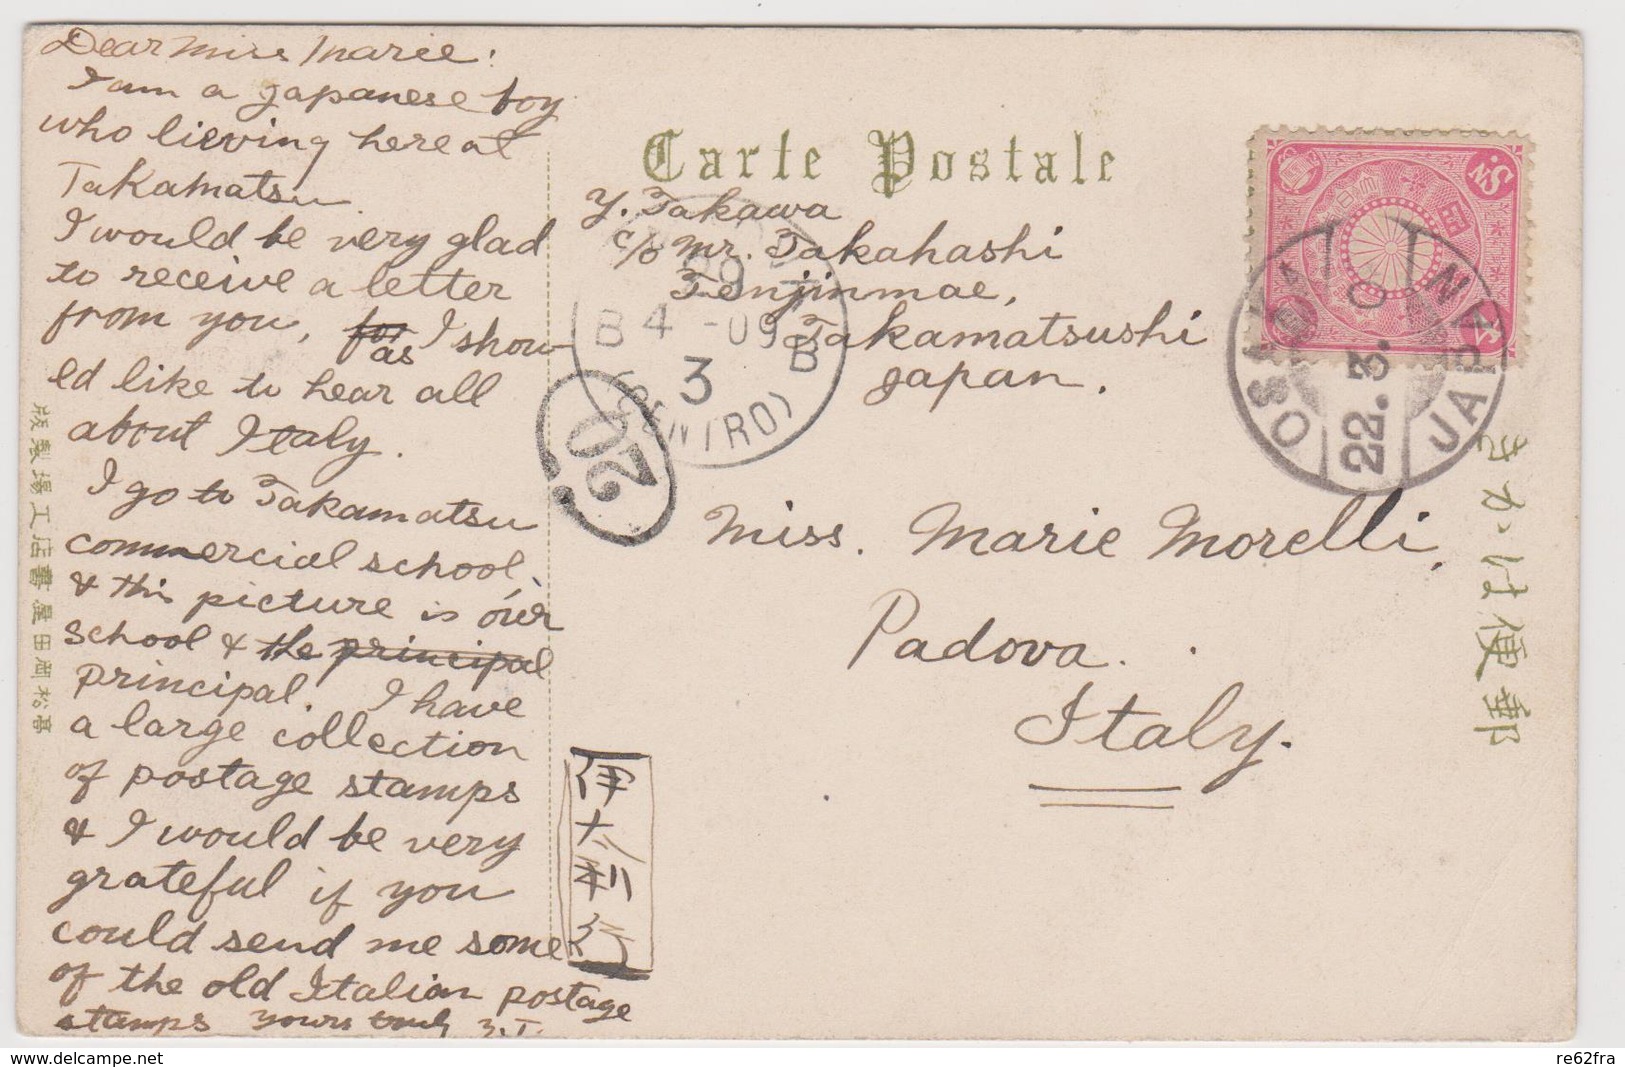 Dear Miss Marie:
I am a Japanese boy
who lieving here at
Takamatsu
I would be very glad
to receive a letter
from you, for as I shou-
ld like to hear all
about Italy.
I go to Takamatsu
commercial school,
& this picture is our
school & the principal
principal. I have
a large collection
of postage stamps
& I would be very
grateful if you
could send me some
of the old Italian postage
stamps yours truly Y.T.
Carte Postale
Y. Takawa
c/o Mr. Takahashi
Tenjinmae,
Takamatsushi
Japan.
Miss. Marie Morelli,
Padova.
Italy.
伊太利行
20
29
B 4 - 09 B
3
(RO)
OSAKA
22.3.
JAPAN
Sn.
郵便はかき
高松市丙田屋書店工場製版
re62fra